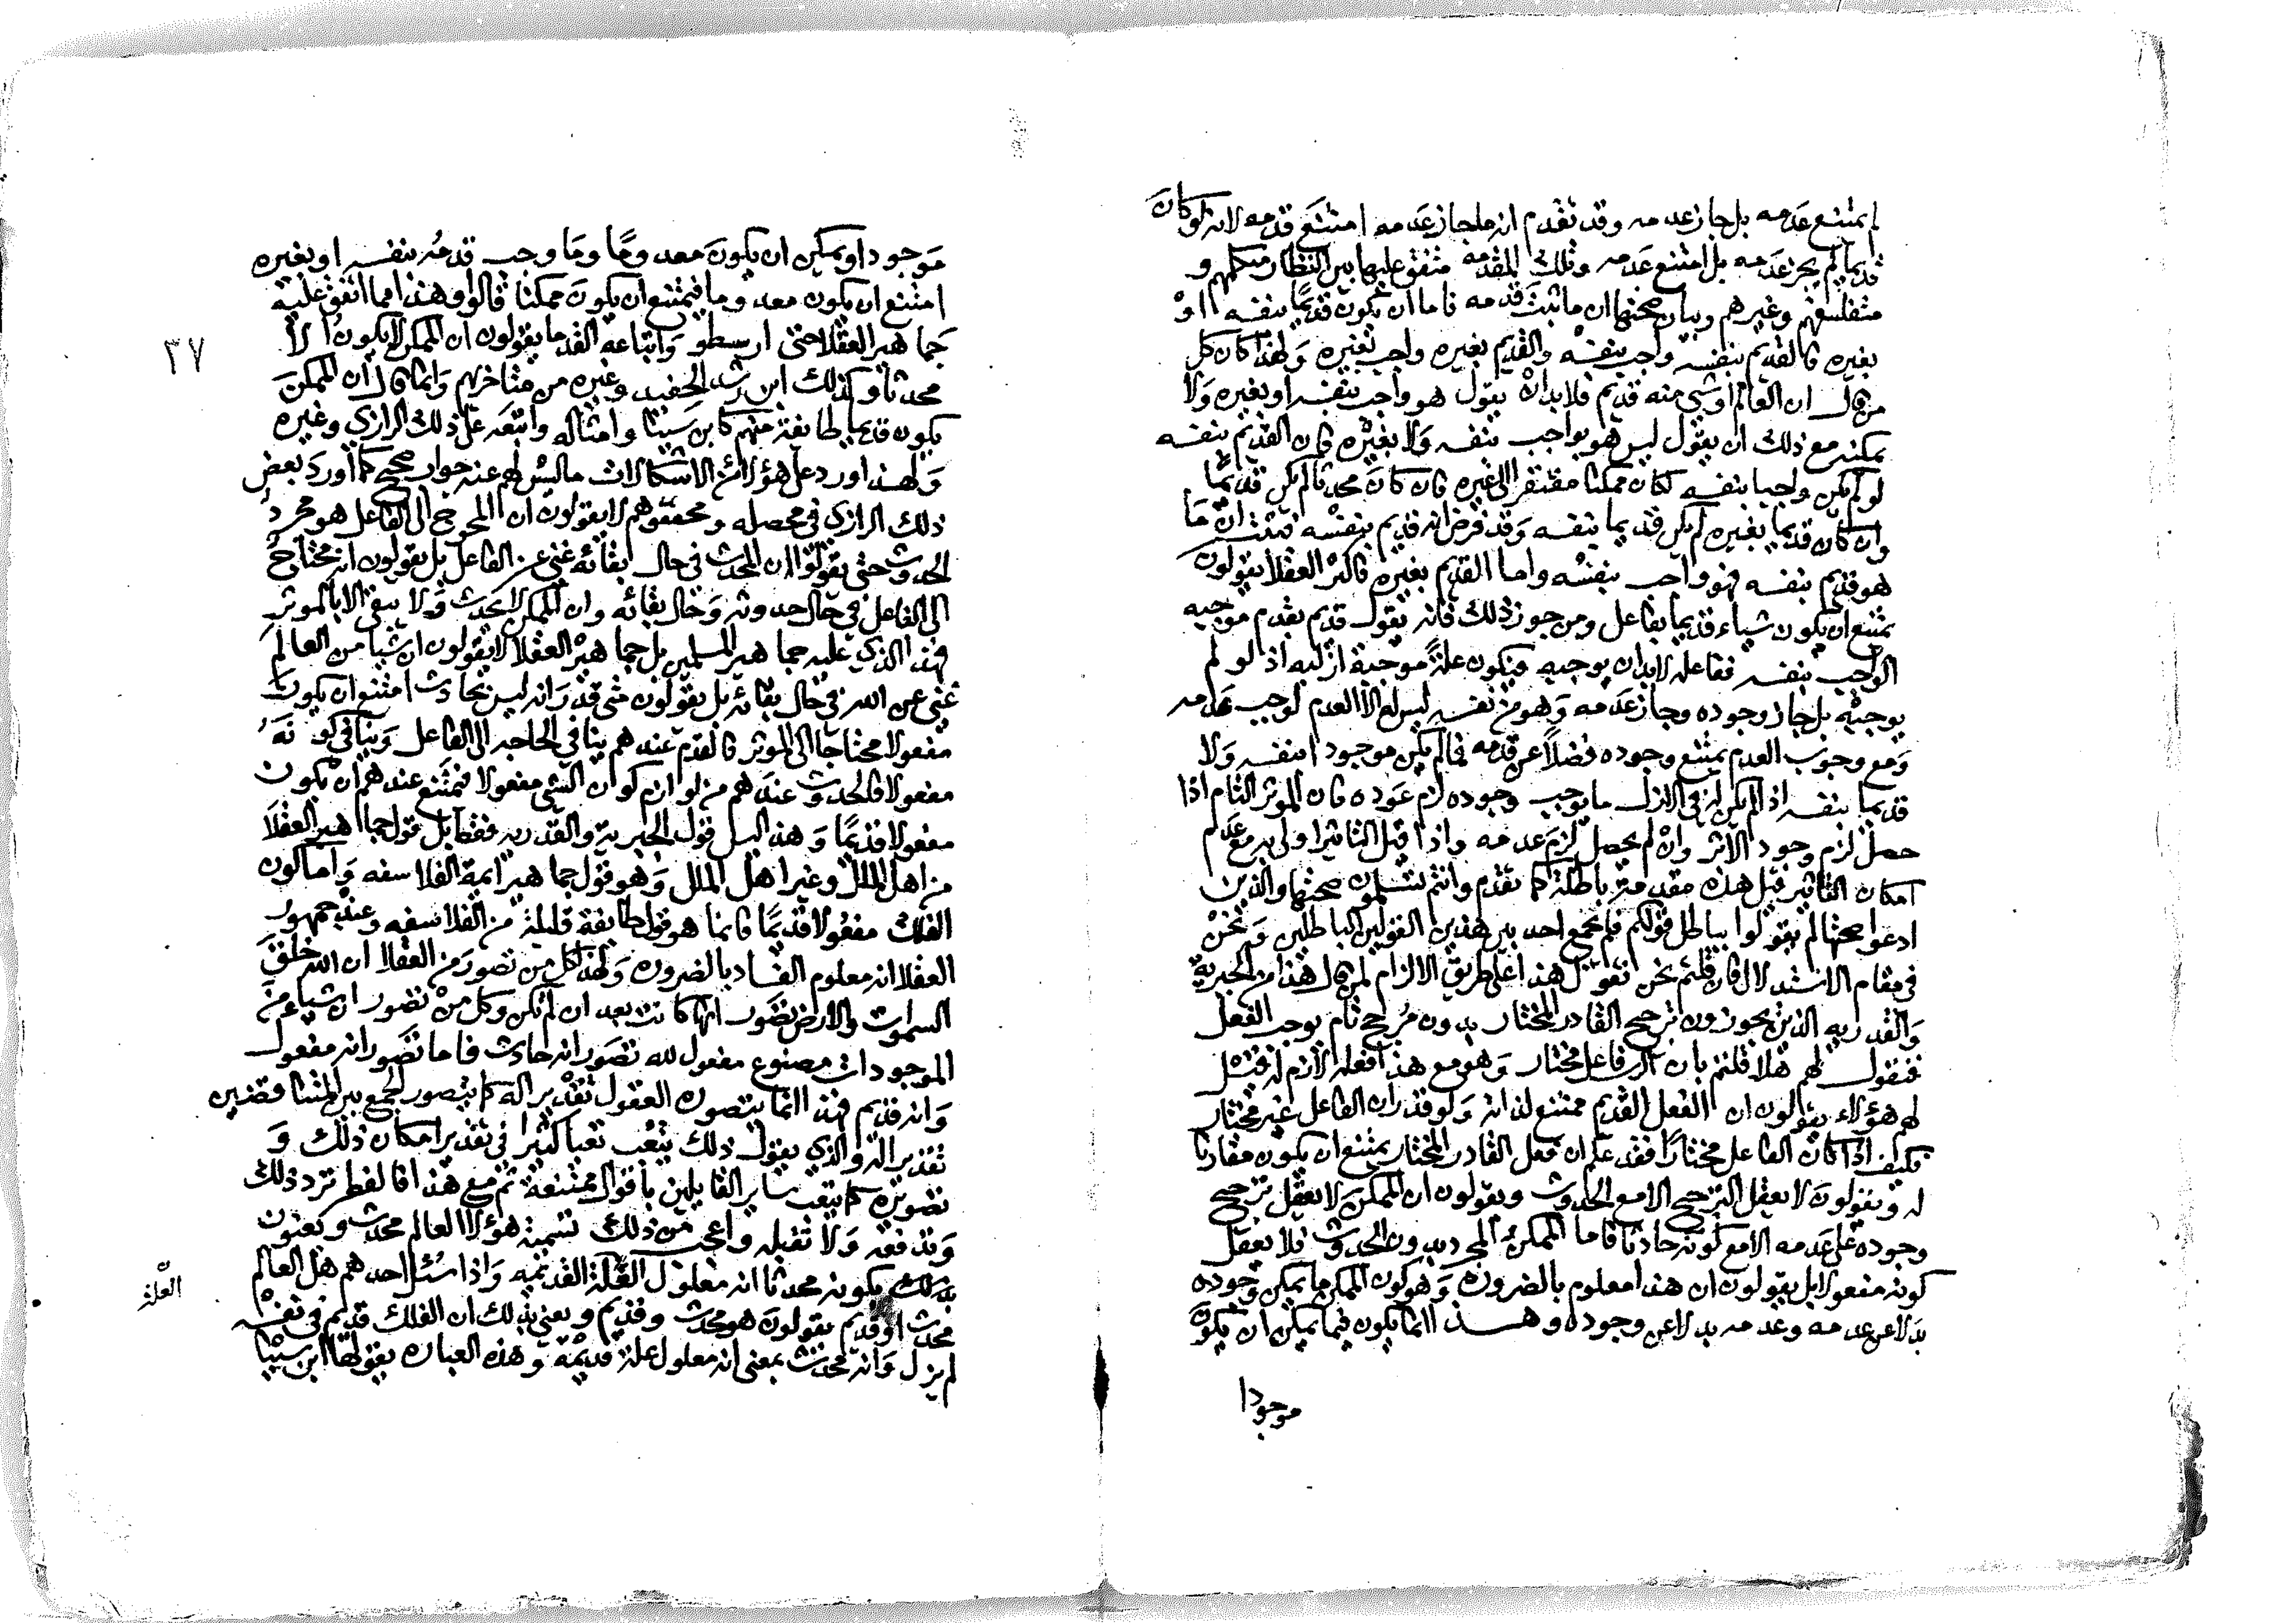 يمتنع عدمه بل جاز عدمه وقد تقدم ان ما جاز عدمه امتنع قدمه لانه لو كان
قديما لم يجز عدمه بل امتنع عدمه وتلك المقدمة متفق عليها بين النظار متكلمهم و
متفلسفهم وغيرهم وبيان صحتها ان ما ثبت قدمه فاما ان يكون قديما بنفسه او
بغيره فالقديم بنفسه واجب بنفسه والقديم بغيره واجب بغيره ولهذا كان كل
من قال ان العالم او شي منه قديم فلا بد ان يقول هو واجب بنفسه او بغيره ولا
يمكنه مع ذلك ان يقول ليس هو بواجب بنفسه ولا بغيره فان القديم بنفسه
لو لم يكن واجبا بنفسه لكان ممكنا مفتقرا الى غيره فان كان محدثا لم يكن قديما
وان كان قديما بغيره لم يكن قديما بنفسه وقد فرض انه قديم بنفسه فثبت ان ما
هو قديم بنفسه فهو واجب بنفسه واما القديم بغيره فاكثر العقلا يقولون
يمتنع ان يكون شيا قديما بفاعل ومن جوز ذلك فانه يقول قديم بقدم موجبه
الواجب بنفسه ففاعله لا بد ان يوجبه فيكون علة موجبة ازلية اذ لو لم
يوجبه بل جاز وجوده وجاز عدمه وهو من نفسه ليس له الا العدم لوجب عدمه
ومع وجوب العدم يمتنع وجوده فضلا عن قدمه فما لم يكن موجودا بنفسه ولا
قديما بنفسه اذا لم يكن له في الازل ما يوجب وجوده لزم عدمه فان الموثر التام اذا
حصل لزم وجود الاثر وان لم يحصل لزم عدمه واذا قيل التاثير اولى به مع عدم
امكان التاثير قيل هذه مقدمة باطلة كما تقدم وانتم تسلمون صحتها والذين
ادعوا صحتها لم يقولوا بباطل قولكم فلم يجمع احد بين هذين القولين الباطلين ونحن
في مقام الاستدلال فان قلتم نحن نقول هذا على طريق الالزام لمن قال هذا من الجبرية
والقدرية الذين يجوزون ترجيح القادر المختار بدون مرجح تام يوجب الفعل
فنقول لهم هلا قلتم بان الرب فاعل مختار وهو مع هذا فعله لازم له قيل
لهم هؤلاء يقولون ان الفعل القديم ممتنع لذاته ولو قدر ان الفاعل غير مختار
فكيف اذا كان الفاعل مختارا فقد علم ان فعل القادر المختار يمتنع ان يكون مقارنا
له ويقولون لا يعقل الترجيح الا مع الحدوث ويقولون ان الممكن لا يعقل ترجيح
وجوده على عدمه الا مع كونه حادثا فاما الممكن المجرد بدون الحدوث فلا يعقل
كونه مفعولا بل يقولون ان هذا معلوم بالضرورة وهو كون الممكن ما يمكن وجوده
بدلا عن عدمه وعدمه بدلا عن وجوده وهذا انما يكون فيما يمكن ان يكون
موجودا
موجودا ويمكن ان يكون معدوما وما وجب قدمه بنفسه او بغيره
امتنع ان يكون معدوما فيمتنع ان يكون ممكنا قالوا وهذا مما اتفق عليه
جماهير العقلا حتى ارسطو واتباعه القدما يقولون ان الممكن لا يكون الا
محدثا وكذلك ابن رشد الحفيد وغيره من متاخريهم وانما قال ان الممكن
يكون قديما طائفة منهم كابن سينا وامثاله واتبعه على ذلك الرازي وغيره
ولهذا اورد على هؤلا من الاشكالات ما ليس لهم عنه جواب صحيح كما اورد بعض
ذلك الرازي في محصله ومحققوهم لا يقولون ان المحوج الى الفاعل هو مجرد
الحدوث حتى يقولوا ان المحدث في حال بقائه غني عن الفاعل بل يقولون انه محتاج
الى الفاعل في حال حدوثه وحال بقائه وان الممكن لا يحدث ولا يبقى الا بالموثر
فهذا الذي عليه جماهير المسلمين بل جماهير العقلا لا يقولون ان شيا من العالم
غني عن الله في حال بقائه بل يقولون متى قدر انه ليس بحادث امتنع ان يكون
مفعولا محتاجا الى الموثر فالقدم عندهم ينافي الحاجه الى الفاعل وينافي كونه
مفعولا فالحدوث عندهم من لوازم كون الشي مفعولا فيمتنع عندهم ان يكون
مفعولا قديما وهذا ليس قول الجبرية والقدرية فقط بل قول جماهير العقلا
من اهل الملل وغير اهل الملل وهو قول جماهير ائمة الفلاسفه واما كون
الفلك مفعولا قديما فانما هو قول طائفة قليلة من الفلاسفه وعند جمهور
العقلا انه معلوم الفساد بالضرورة ولهذا كل من تصور من العقلا ان الله خلق
السموات والارض تصور انها كانت بعد ان لم تكن وكل من تصور ان شيا من
الموجودات مصنوع مفعول لله تصور انه حادث فاما تصور انه مفعول
وانه قديم فهذا انما يتصوره العقول تقديرا له كما يتصور الجمع بين المتناقضين
تقديرا له والذي يقول ذلك يتعب تعبا كثيرا في تقدير امكان ذلك و
تصويره كما يتعب ساير القايلين باقوال ممتنعة ثم مع هذا فالفطر ترد ذلك
وتدفعه ولا تقبله واعجب من ذلك تسمية هؤلا العالم محدث ويعنون
بذلك بكونه محدثا انه معلول العلة القديمه واذا سئل احدهم هل العالم
محدث او قديم يقولون هو محدث وقديم ويعني بذلك ان الفلك قديم في نفسه
لم يزل وانه محدث بمعنى انه معلول علة قديمة وهذه العباره يقولها ابن سينا
٣٧
العلة